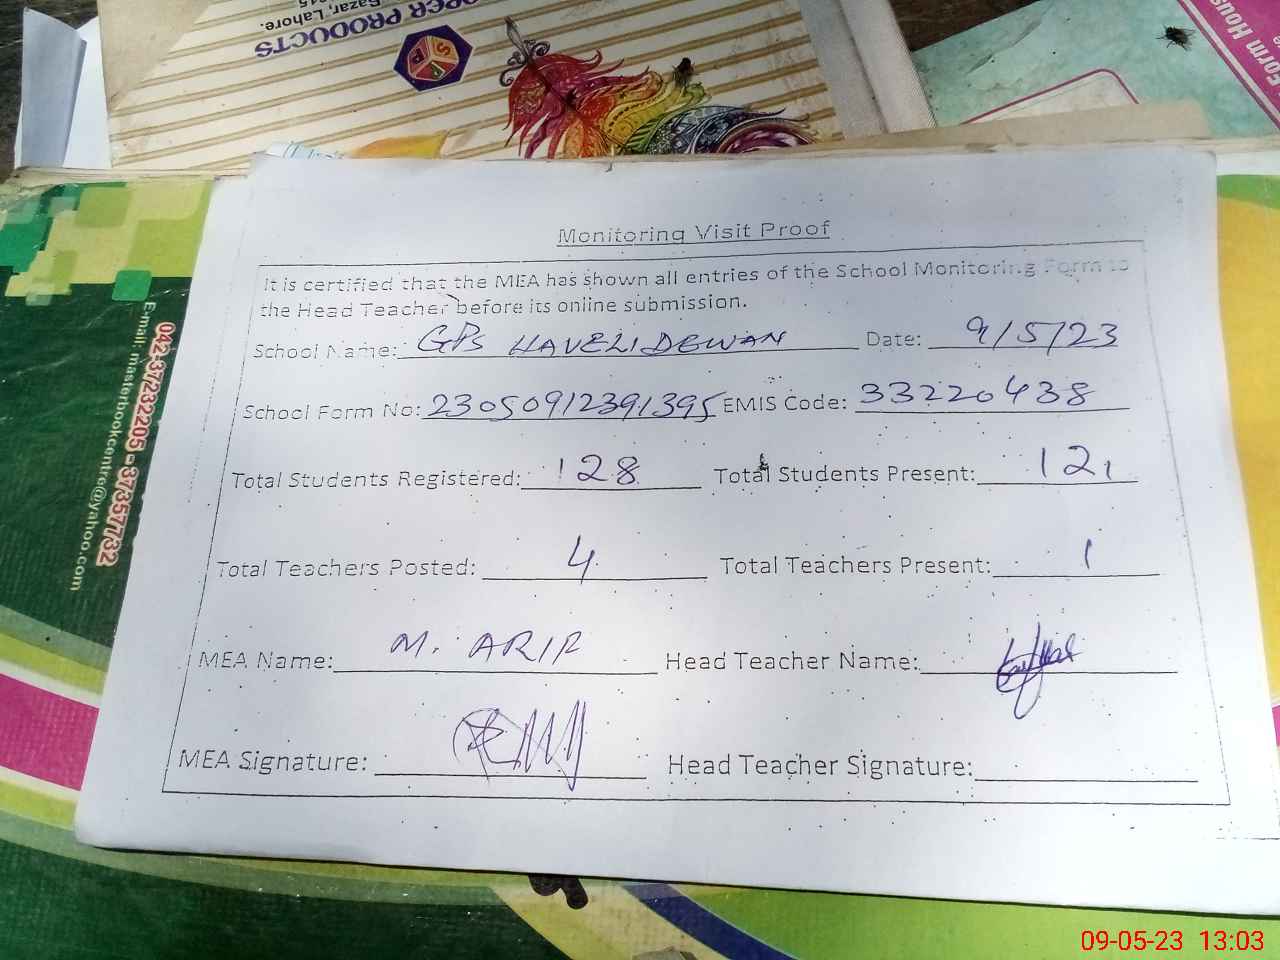 Bazar, Lahore.
PER PRODUCTS
SPP
Form Hous
E-mail: masterbookcentre@yahoo.com
042-37232205 - 37357732
Monitoring Visit Proof
It is certified that the MEA has shown all entries of the School Monitoring Form to
the Head Teacher before its online submission.
School Name: GPS HAVELI DEWAN Date: 9/5/23
School Form No: 23050912391395 EMIS Code: 33220438
Total Students Registered: 128 Total Students Present: 121
Total Teachers Posted: 4 Total Teachers Present: 1
MEA Name: M. ARIF Head Teacher Name:
MEA Signature: Head Teacher Signature:
09-05-23 13:03